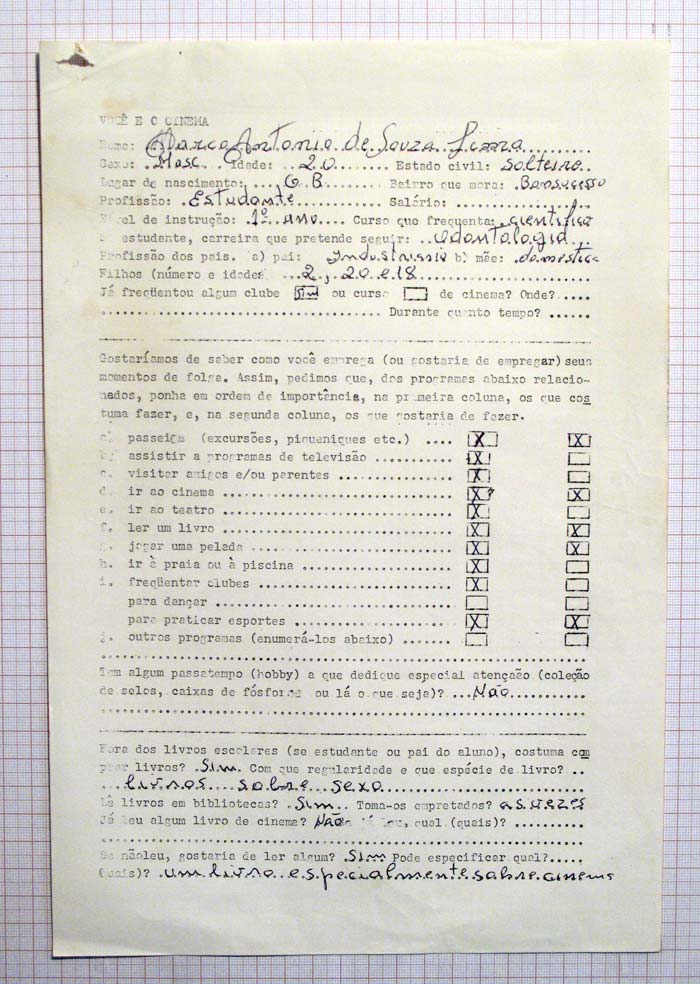 VOCÊ E O CINEMA
Nome: Marco Antonio de Souza
Sexo: Masc. Idade: ..20...... Estado civil: solteiro..
Lugar de nascimento: ....G B........ Bairro que mora: .Bonsucesso
Profissão: .Estudante............ Salário: ...................
Nível de instrução: .1º ano.... Curso que frequenta: .científico
estudante, carreira que pretende seguir: ..odontologia...
Profissão dos pais. (a) pai: Industriario b) mãe: .doméstica
Filhos (número e idades ...2, 20 e 18......................
Já freqüentou algum clube [sim] ou curso [ ] de cinema? Onde?.....
.................................... Durante quanto tempo? ......
Gostaríamos de saber como você emprega (ou gostaria de empregar) seus
momentos de folga. Assim, pedimos que, dos programas abaixo relacio-
nados, ponha em ordem de importância, na primeira coluna, os que cos
tuma fazer, e, na segunda coluna, os que gostaria de fazer.
a. passeios (excursões, piqueniques etc.) .... [X] [X]
b. assistir a programas de televisão ........... [X] [ ]
c. visitar amigos e/ou parentes ................ [X] [ ]
d. ir ao cinema ................................ [X] [X]
e. ir ao teatro ................................ [X] [ ]
f. ler um livro ................................ [X] [X]
g. jogar uma pelada ............................ [X] [X]
h. ir à praia ou à piscina ..................... [X] [ ]
i. freqüentar clubes ........................... [X] [ ]
para dançar ................................. [ ] [ ]
para praticar esportes ...................... [X] [X]
j. outros programas (enumerá-los abaixo) ....... [ ] [ ]
Tem algum passatempo (hobby) a que dedique especial atençaão (coleção
de selos, caixas de fósforos ou lá o que seja)? ...Não..........
Fora dos livros escolares (se estudante ou pai do aluno), costuma com
prar livros? .Sim. Com que regularidade e que espécie de livro? ..
...livros sobre sexo...........................
Lê livros em bibliotecas? .Sim.. Toma-os empretados? as vezes
Já leu algum livro de cinema? Não qual (quais)? ..........
Se nãoleu, gostaria de ler algum? .Sim Pode especificar qual?.....
(quais)? .um livro especialmente sobre cinema